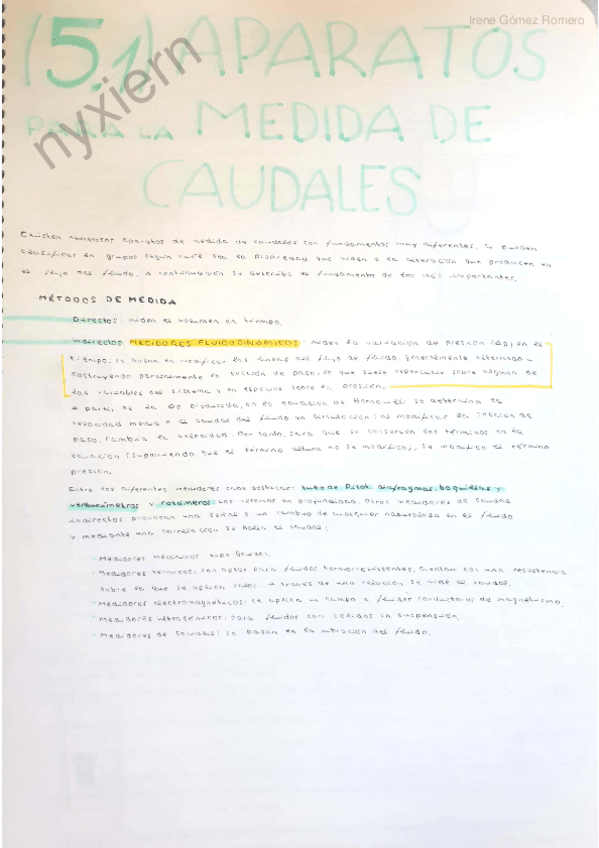 Irene Gómez Romero
nyxiern
(5.1) APARATOS
PARA LA MEDIDA DE
CAUDALES
Existen numerosos aparatos de medida de caudales con fundamentos muy diferentes. Se pueden
clasificar en grupos según cual sea la propiedad que miden o la alteración que producen en
el flujo del fluido. A continuación se describe el fundamento de los más importantes.
MÉTODOS DE MEDIDA
Directos: miden el volumen en tiempo.
Indirectos: MEDIDORES FLUIDODINÁMICOS: miden la variación de presión (Δp) en el
tiempo. Se basan en modificar las líneas del flujo de fluido, generalmente alternando u
obstruyendo parcialmente la sección de paso, lo que suele repercutir sobre alguna de
las variables del sistema y en especial sobre la presión.
A partir de la Δp producida, en la ecuación de Bernoulli se determina la
velocidad media o el caudal del fluido en circulación: al modificar la sección de
paso, cambia la velocidad. Por tanto, para que se conserven los términos en la
ecuación (suponiendo que el término altura no se modifica), se modifica el término
presión.
Entre los diferentes medidores cabe destacar: tubo de Pitot, diafragmas, boquillas y
venturímetros y rotámetros. Los veremos en profundidad. Otros medidores de caudal
indirectos provocan una señal o un cambio de cualquier naturaleza en el fluido
y mediante una correlación se halla el caudal:
- Medidores mecánicos tipo
- Medidores térmicos: son aptos para fluidos termorresistentes. Cuentan con una resistencia
sobre la que se aplica calor. A través de una relación se mide el caudal.
- Medidores electromagnéticos: se aplica un campo a fluidos conductores de magnetismo.
- Medidores ultrasónicos: para fluidos con sólidos en suspensión.
- Medidores de: se basan en la vibración del fluido.